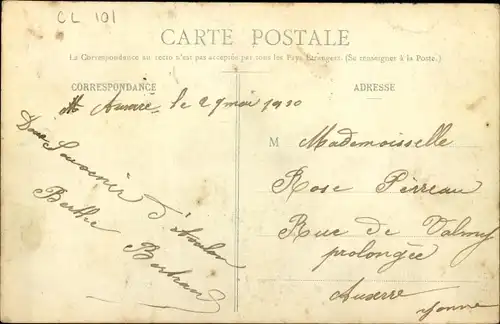 CL 101
CARTE POSTALE
La Correspondance au recto n'est pas acceptée par tous les Pays Etrangers. (Se renseigner à la Poste.)
CORRESPONDANCE
ADRESSE
le 29 mai 1910
Doux Souvenir d'Avalon
Berthe Bertrand
M Mademoisselle
Rose Perreau
Rue de Valmy
prolongée
Auxerre
Yonne